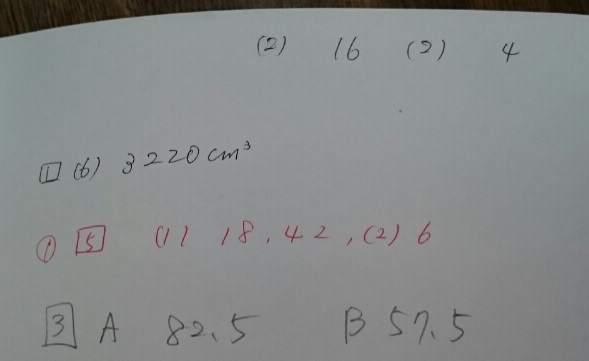 (2) 16 (2) 4
1 (6) 3220 cm³
① 5 (1) 18, 42, (2) 6
3 A 82.5 B 57.5